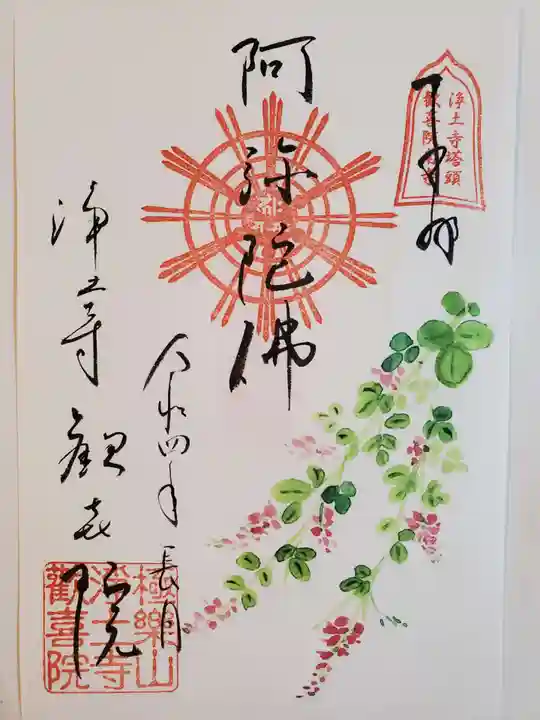 奉拝
浄土寺塔頭
歓喜院
阿弥陀佛
令和四年長月
浄土寺歓喜院
極樂山
浄土寺
歡喜院